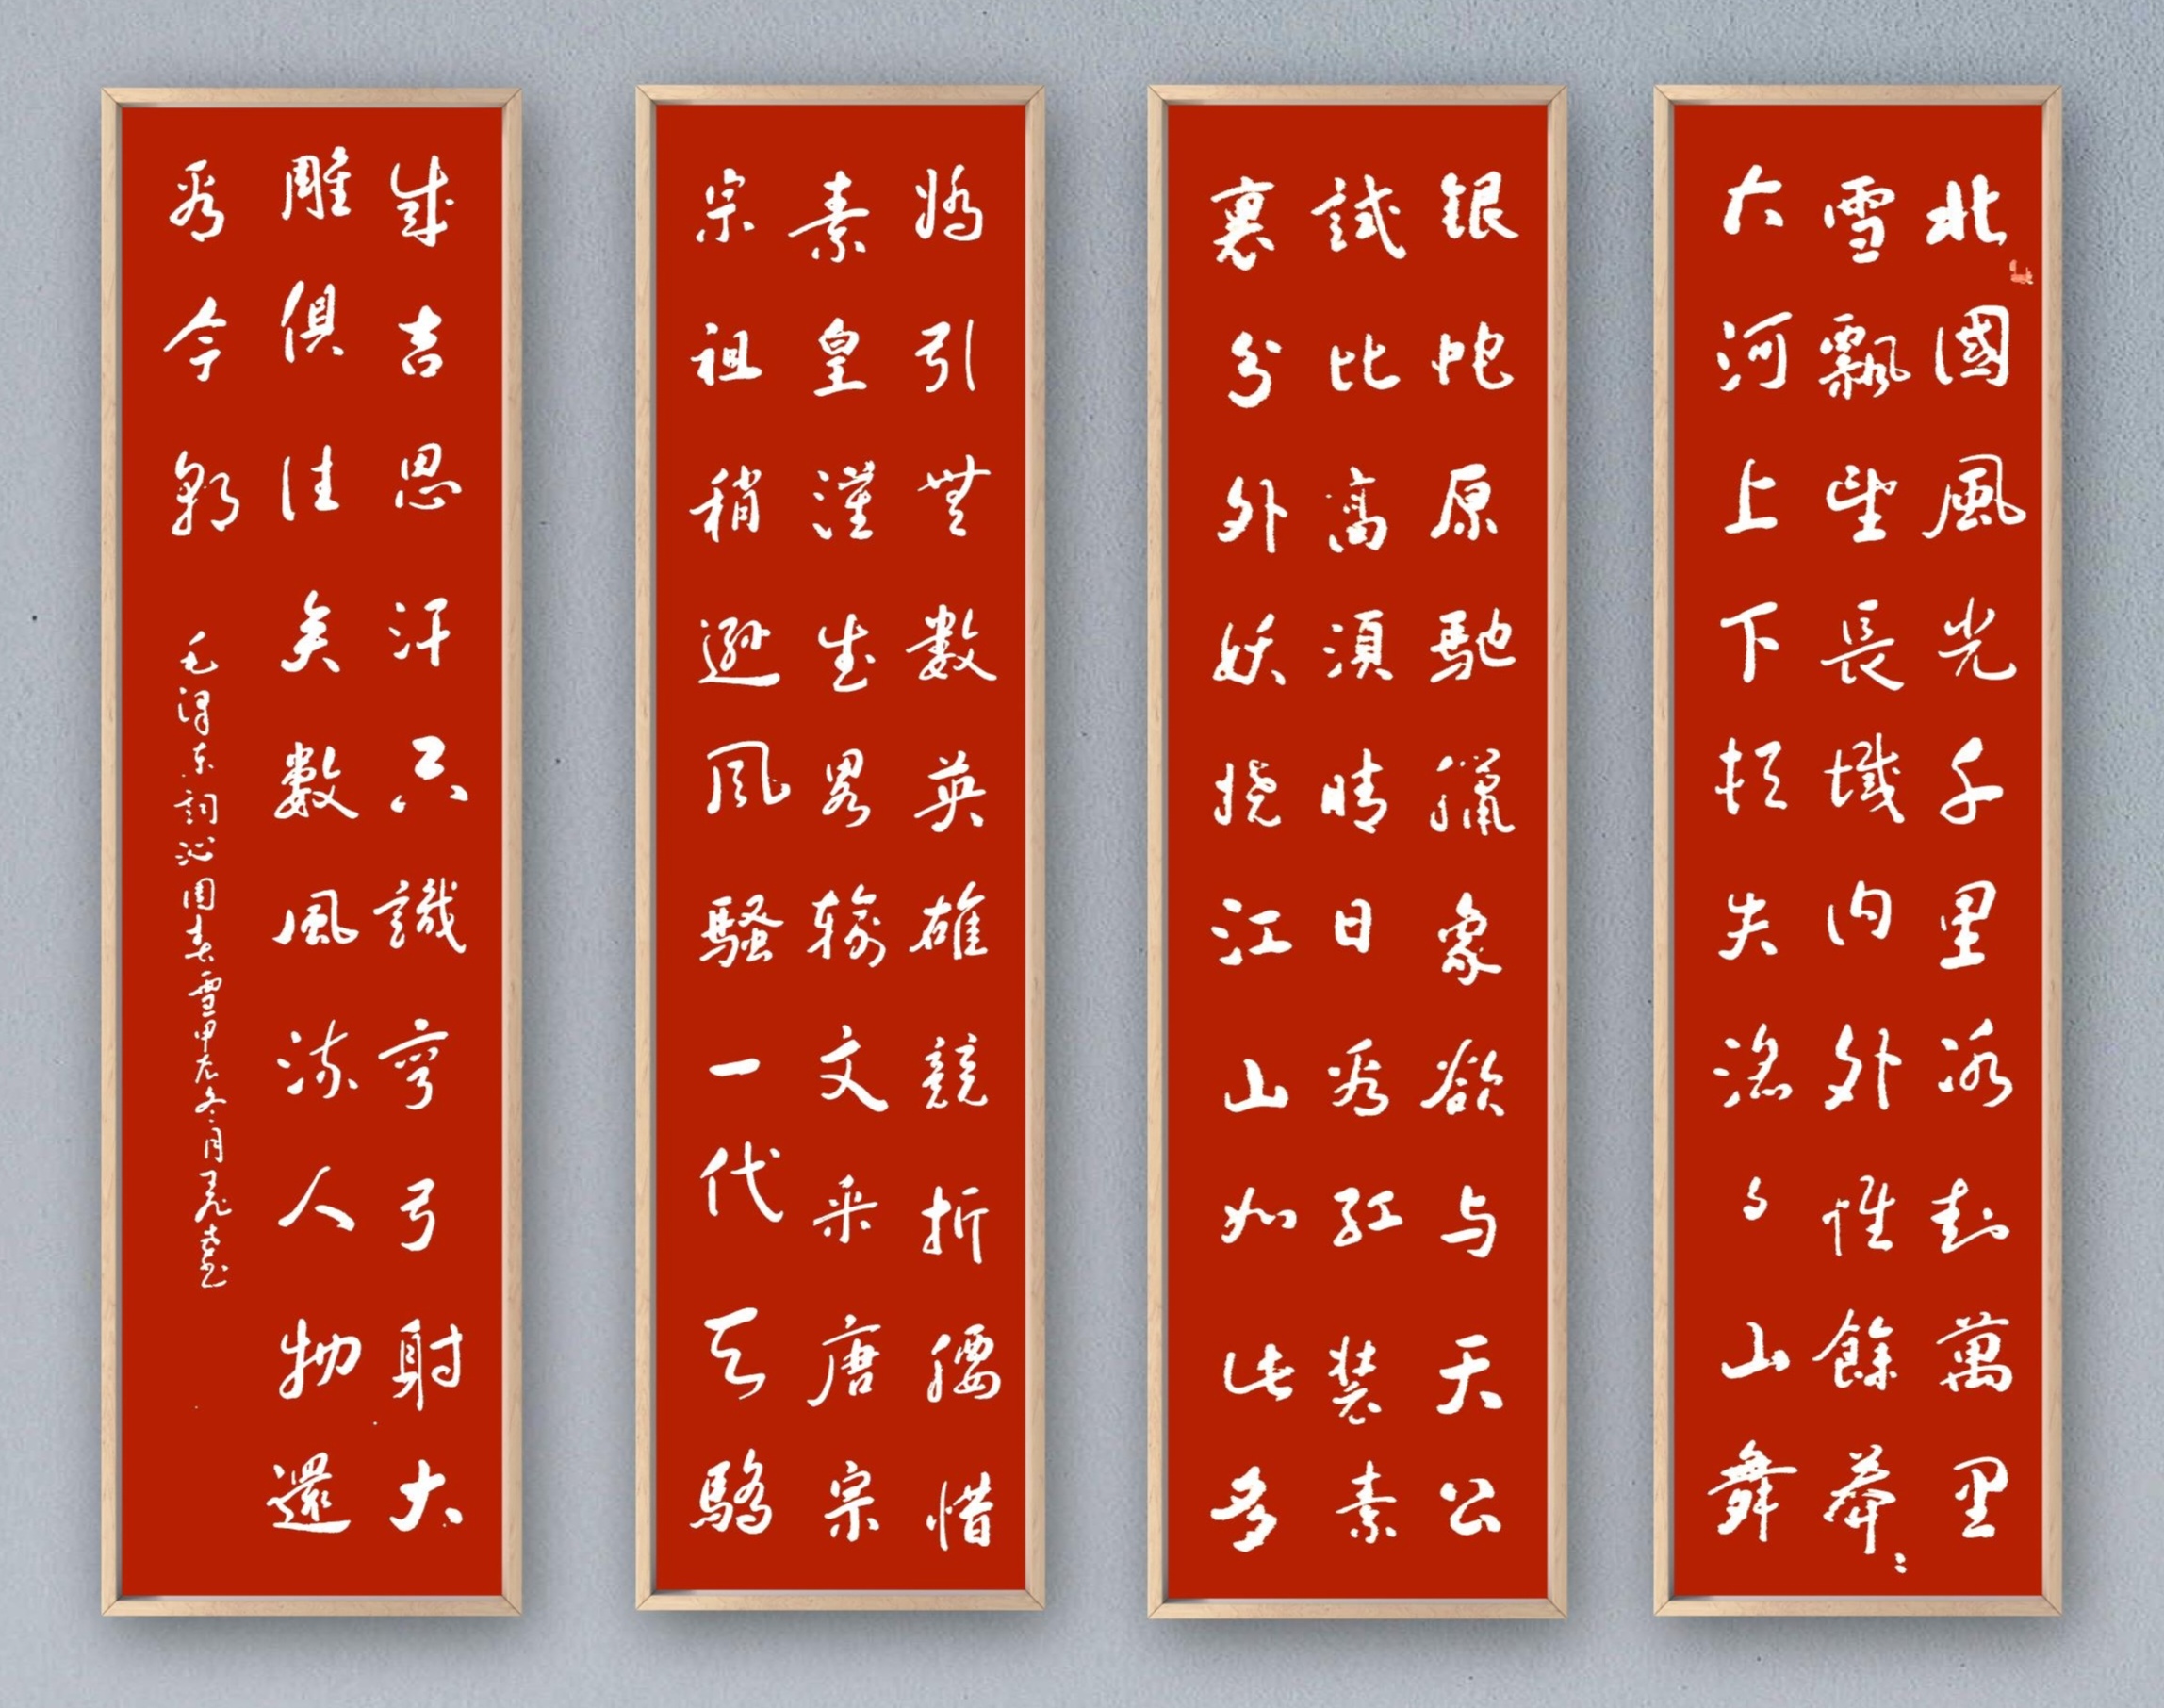 北國風光千里冰封萬里
雪飄望長城内外惟餘莽々
大河上下頓失滔々山舞
銀蛇原馳臘象欲与天公
試比高須晴日看紅裝素
裹分外妖嬈江山如此多
嬌引無數英雄競折腰惜
秦皇漢武略輸文采唐宗
宋祖稍遜風騷一代天驕
成吉思汗只識彎弓射大
雕俱往矣數風流人物還
看今朝
毛澤東詞沁園春雪甲辰冬月